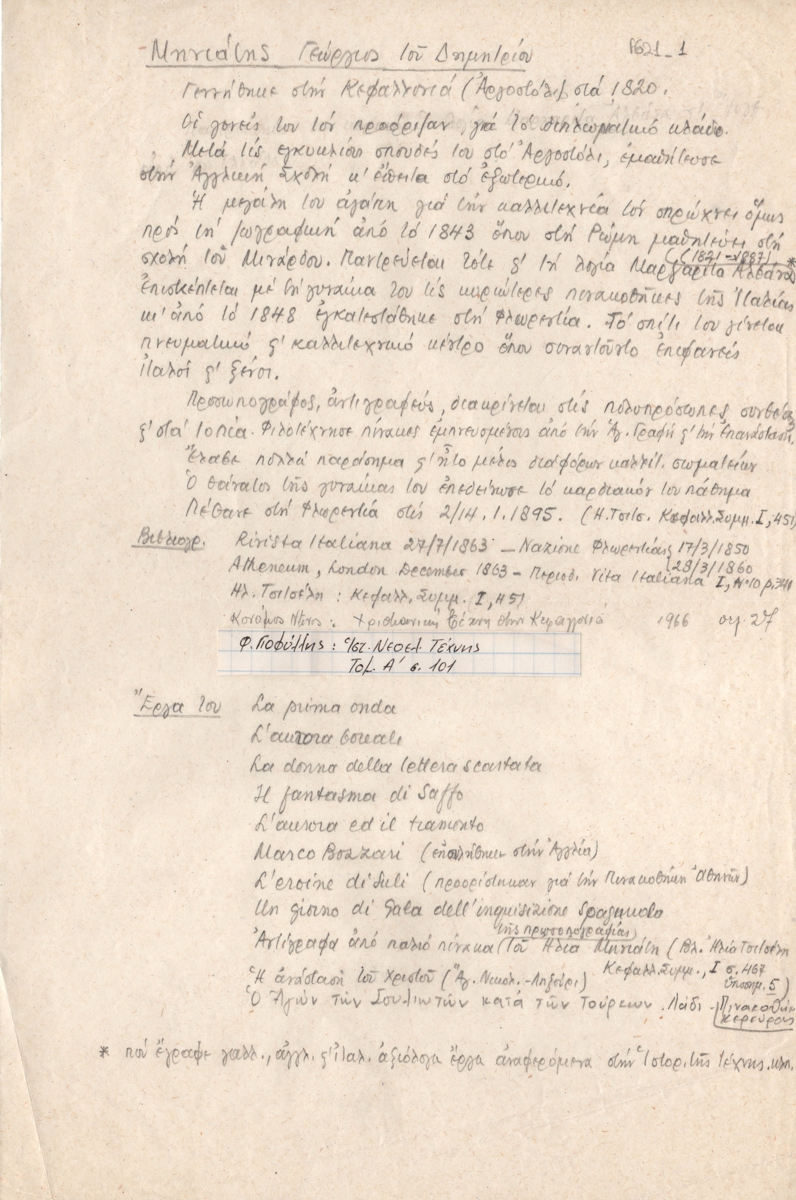 - Μηνιάτης Γεώργιος τοῦ Δημητρίου Β621_1
Γεννήθηκε στήν Κεφαλλονιά (Ἀργοστόλι) στά 1820.
Οἱ γονεῖς του τόν προόριζαν γιά τό διπλωματικό κλάδο.
Μετά τίς ἐγκυκλίους σπουδές του στό Ἀργοστόλι, ἐμαθήτευσε
στήν Ἀγγλική Σχολή κ' ἔπειτα στό ἐξωτερικό.
Ἡ μεγάλη του ἀγάπη γιά τήν καλλιτεχνία τόν σπρώχνει ὅμως
πρός τή ζωγραφική ἀπό τό 1843 ὅπου στή Ρώμη μαθητεύει στή
σχολή τοῦ Μινάρδου. Παντρεύεται τότε ϛ' τή λογία Μαργαρίτα Ἀλβάνα (1821-1887) *
ἐπισκέπτεται μέ τή γυναίκα του τίς κυριώτερες πινακοθῆκες τῆς Ἰταλίας
κι' ἀπό τό 1848 ἐγκαταστάθηκε στή Φλωρεντία. Τό σπίτι του γίνεται
πνευματικό ϛ' καλλιτεχνικό κέντρο ὅπου συναντοῦντο ἐπιφανεῖς
ἰταλοί ϛ' ξένοι.
Προσωπογράφος, ἀντιγραφεύς, διακρίνεται στίς πολυπρόσωπες συνθέσεις
ϛ' στά τοπία. Φιλοτέχνησε πίνακες ἐμπνευσμένους ἀπό τήν Ἁγ. Γραφή ϛ' τήν Ἐπανάσταση.
Ἔλαβε πολλά παράσημα ϛ' ἦτο μέλος διαφόρων καλλιτ. σωματείων
Ὁ θάνατος τῆς γυναίκας του ἐπεδείνωσε τό καρδιακόν του πάθημα
Πέθανε στή Φλωρεντία στίς 2/14.1.1895. (Η. Τσιτσ. Κεφαλλ. Συμμ. I, 451)
Βιβλιογρ. Rivista Italiana 27/7/1863 - Nazione Φλωρεντίας 17/3/1850
28/3/1860
Atheneum, London December 1863 - Περιοδ. Vita Italiana I, No 10 p. 341
Ηλ. Τσιτσέλη : Κεφαλλ. Συμμ. I, 451
Κονόμος Ντῖνος : Χριστιανική Τέχνη στήν Κεφαλονιά 1966 σελ. 27
Φ. Γιοφύλλης : Ἱστ. Νεοελ. Τέχνης
Τομ. Α' σ. 101
Ἔργα του La prima onda
L'aurora boreale
La donna della lettera scartata
Il fantasma di Saffo
L'aurora ed il tramonto
Marco Bozzari (ἐπωλήθηκε στήν Ἀγγλία)
L'eroine di Suli (προορίστηκαν γιά τήν Πινακοθήκη Ἀθηνῶν)
Un giorno di Gala dell'inquisizione Spagnuola
Ἀντίγραφα ἀπό παλιό πίνακα τῆς προσωπογραφίας τοῦ Ἠλία Μηνιάτη (Βλ. Ἠλία Τσιτσέλη
Κεφαλλ. Συμμ., I σ. 467
ὑποσημ. 5)
Ἡ ἀνάσταση τοῦ Χριστοῦ (Ἁγ. Νικολ. - Ληξούρι)
Ὁ Ἀγών τῶν Σουλιωτῶν κατά τῶν Τούρκων. Λάδι - Πινακοθήκη
Κερκύρας
* πού ἔγραψε γαλλ., ἀγγλ. ϛ' ἰταλ. ἀξιόλογα ἔργα ἀναφερόμενα στήν Ἱστορ. τῆς τέχνης. κλπ.